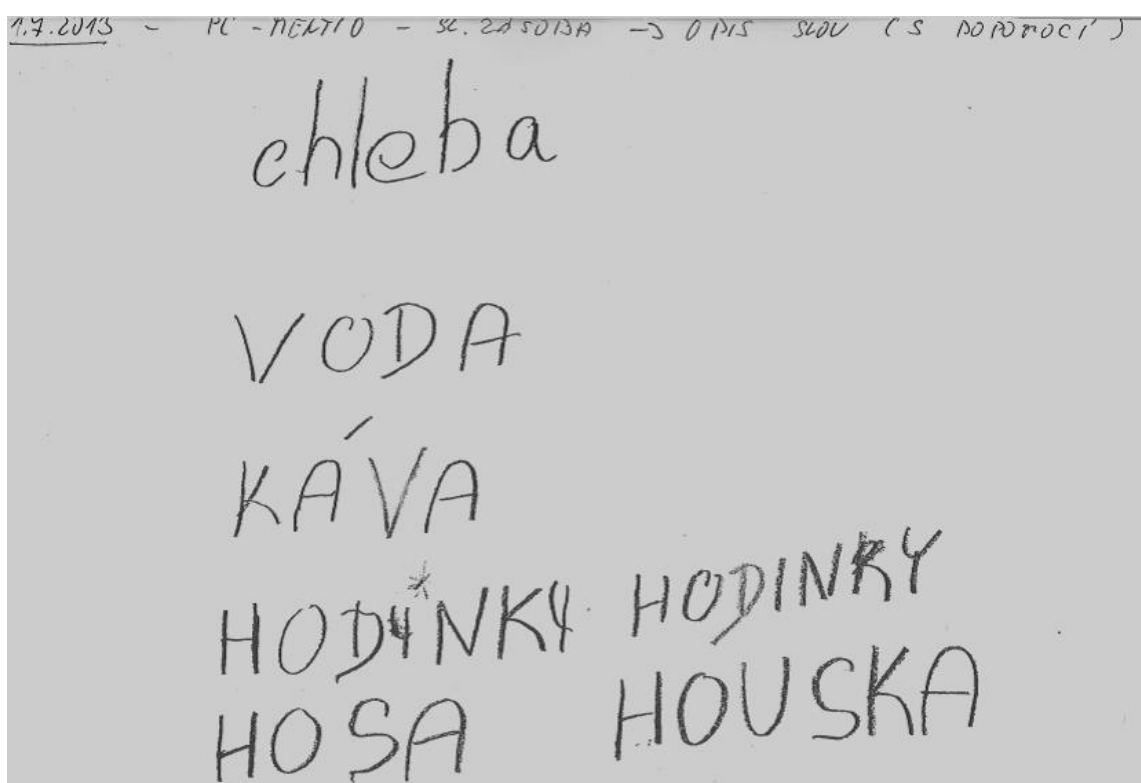 1.7.2013 - PC - MENTIO - SL. ZÁSOBA -> OPIS SLOV (S DOPOMOCÍ)
chleba
VODA
KÁVA
HODINKY HODINKY
HOSA HOUSKA